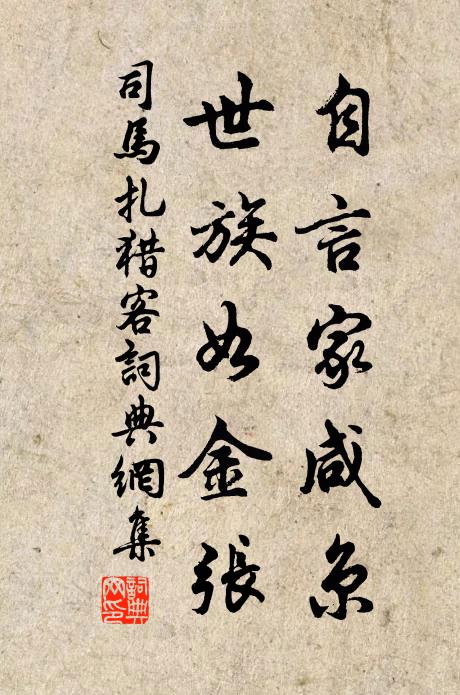 自言家咸京
世族如金張
司馬扎猎客詞典網集
詞典网印